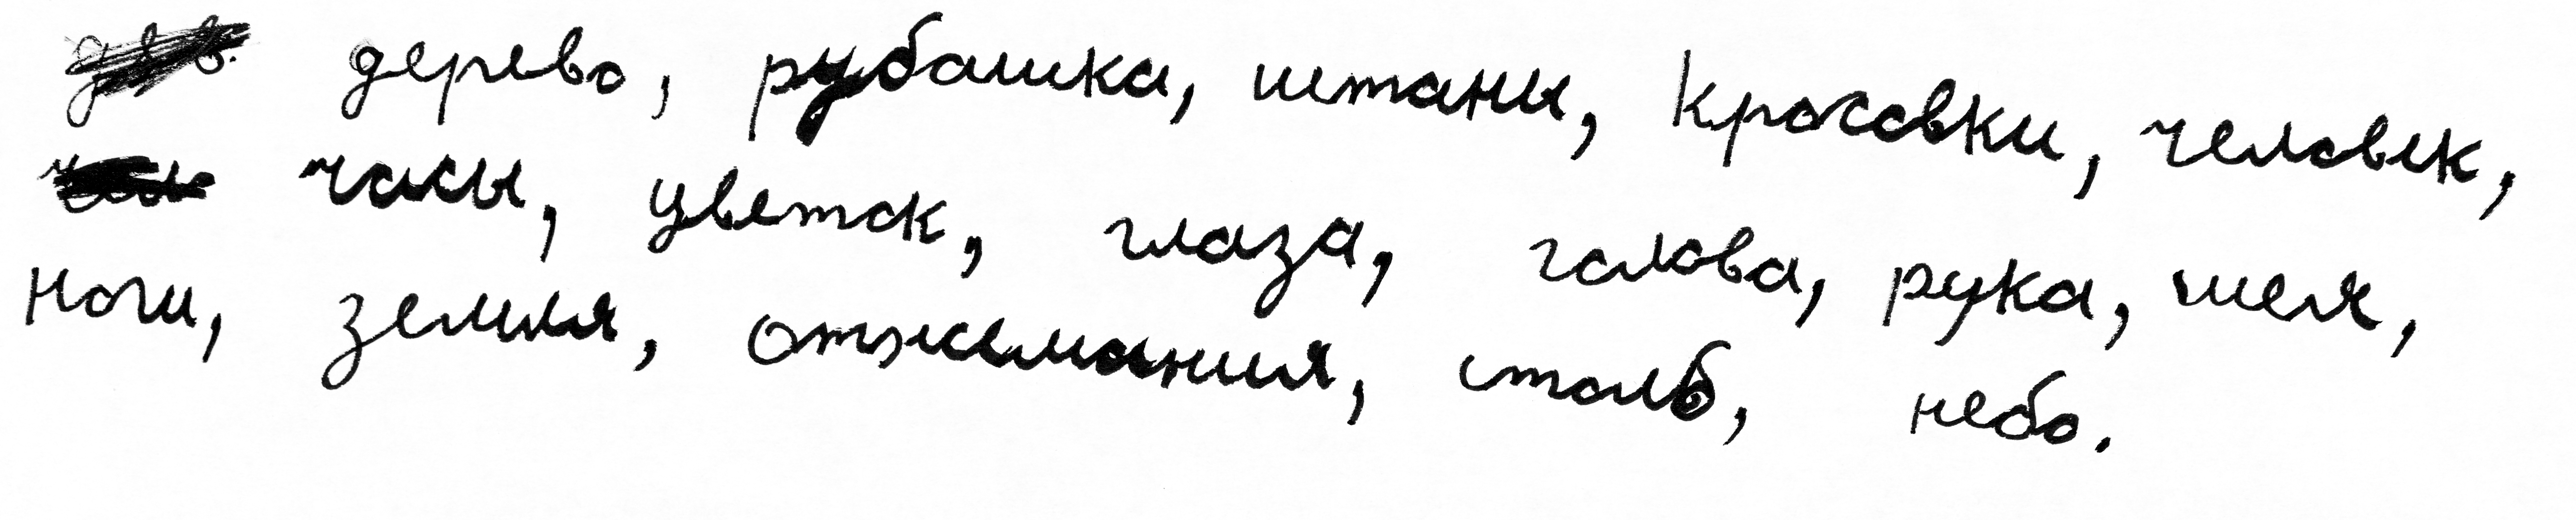 дерево, рубашка, штаны, кросовки, человек,
часы, цветок, глаза, голова, рука, шея,
ноги, земля, отжемания, столб, небо.